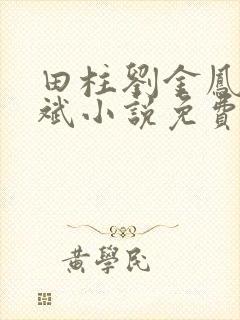 田柱劉金鳳
斌小説免費
黃學民